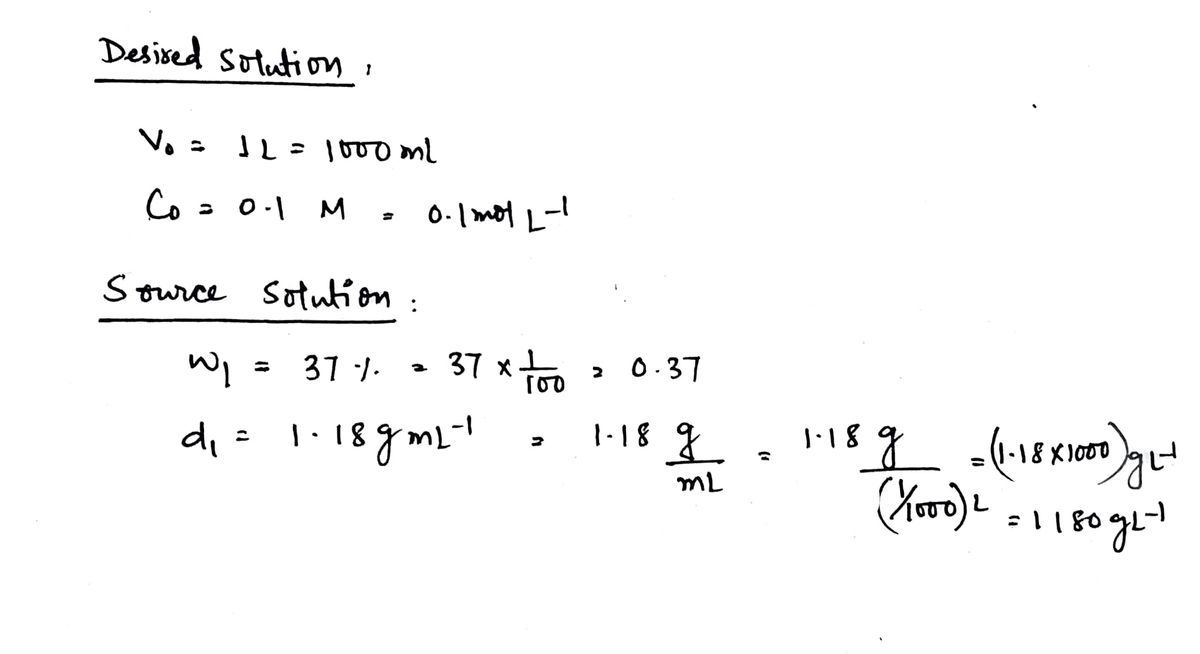 Desired Solution :
V₀ = 1 L = 1000 mL
C₀ = 0.1 M = 0.1 mol L⁻¹
Source Solution :
W₁ = 37 % = 37 × 1/100 = 0.37
d₁ = 1.18 g mL⁻¹ = 1.18 g/mL = 1.18 g/(1/1000) L = (1.18 × 1000) g L⁻¹
= 1180 g L⁻¹